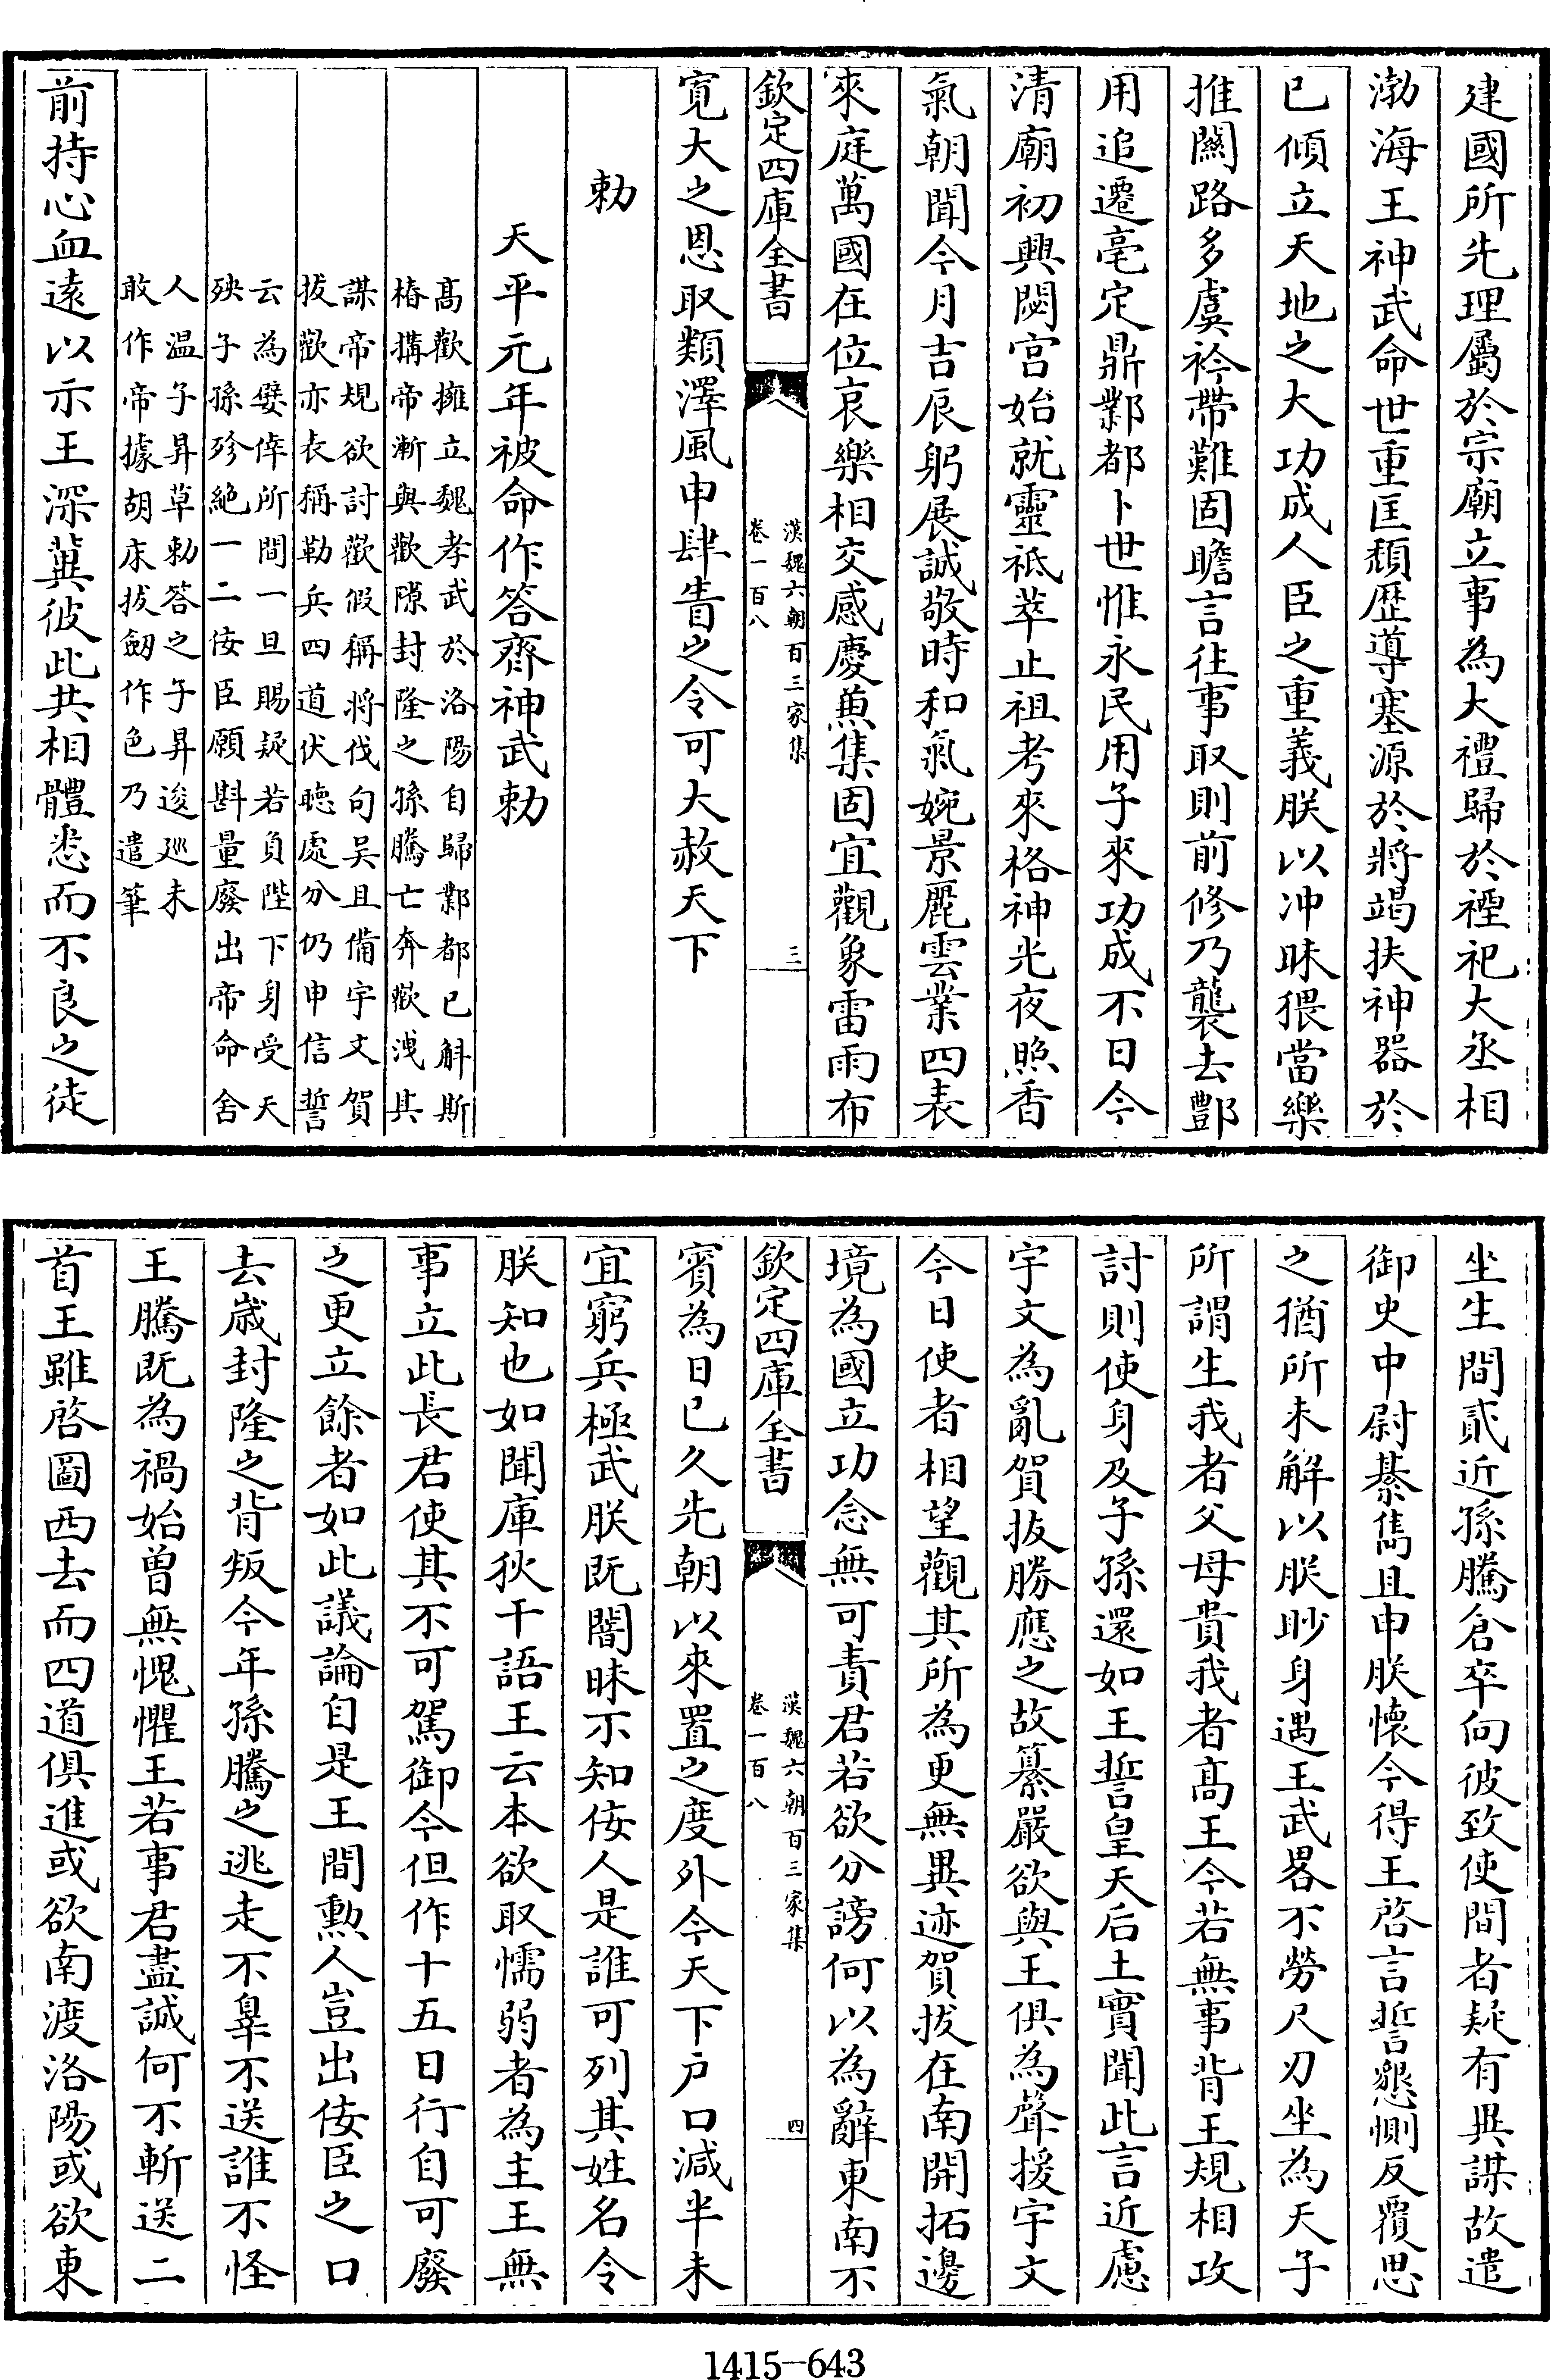 建國所先理屬於宗廟立事為大禮歸於禋祀大丞相
渤海王神武命世重匡頹歷導塞源於將竭扶神器於
已傾立天地之大功成人臣之重義朕以冲昧猥當樂
推闗路多虞衿帶難固瞻言往事取則前修乃襲去酆
用追遷亳定鼎鄴都卜世惟永民用子來功成不日今
清廟初興閟宫始就靈祗萃止祖考來格神光夜照香
氣朝聞今月吉辰躬展誠敬時和氣婉景麗雲業四表
來庭萬國在位哀樂相交感慶兼集固宜觀象雷雨布
欽定四庫全書
漢魏六朝百三家集
卷一百八
三
寛大之恩取類澤風申肆眚之令可大赦天下
勅
天平元年被命作答齊神武勅
髙歡擁立魏孝武於洛陽自歸鄴都已斛斯
椿搆帝漸與歡隙封隆之孫騰亡奔歡洩其
謀帝規欲討歡假稱將伐句吴且備宇文賀
拔歡亦表稱勒兵四道伏聴處分仍申信誓
云為嬖倖所間一旦賜疑若負陛下身受天
殃子孫殄絶一二佞臣願斟量廢出帝命舍
人温子昇草勅答之子昇逡廵未
敢作帝據胡床拔劒作色乃遣筆
前持心血逺以示王深冀彼此共相體悉而不良之徒
坐生間貳近孫騰倉卒向彼致使間者疑有異謀故遣
御史中尉綦雋且申朕懐今得王啓言誓懇惻反覆思
之猶所未解以朕眇身遇王武畧不勞尺刃坐為天子
所謂生我者父母貴我者髙王今若無事背王規相攻
討則使身及子孫還如王誓皇天后土實聞此言近慮
宇文為亂賀拔勝應之故纂嚴欲與王俱為聲援宇文
今日使者相望觀其所為更無異迹賀拔在南開拓邊
境為國立功念無可責君若欲分謗何以為辭東南不
欽定四庫全書
漢魏六朝百三家集
卷一百八
四
賓為日已久先朝以來置之度外今天下户口減半未
宜窮兵極武朕既闇昧不知佞人是誰可列其姓名令
朕知也如聞庫狄干語王云本欲取懦弱者為主王無
事立此長君使其不可駕御今但作十五日行自可廢
之更立餘者如此議論自是王間勲人豈出佞臣之口
去嵗封隆之背叛今年孫騰之逃走不辠不送誰不怪
王騰既為禍始曾無愧懼王若事君盡誠何不斬送二
首王雖啓圖西去而四道俱進或欲南渡洛陽或欲東
1415-643